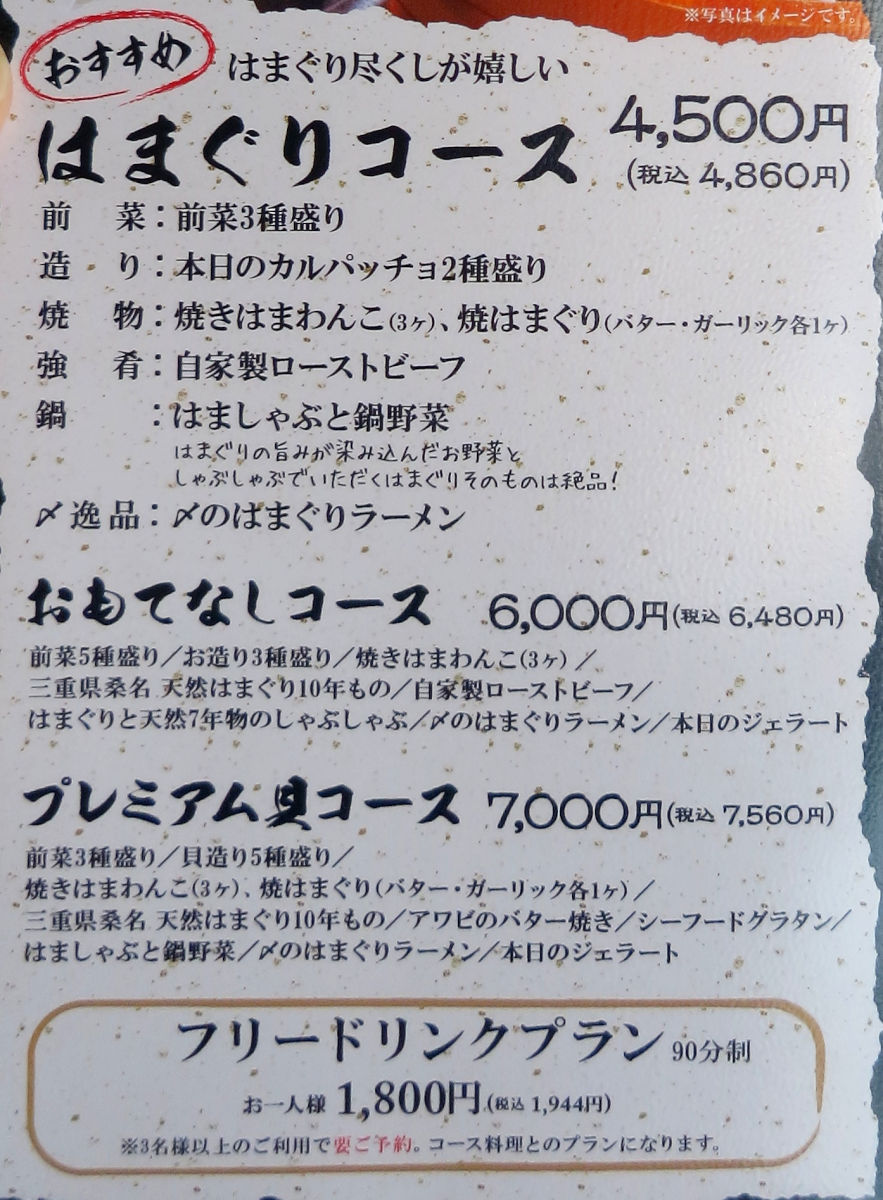 ※写真はイメージです。
おすすめ はまぐり尽くしが嬉しい
はまぐりコース 4,500円
(税込 4,860円)
前菜：前菜3種盛り
造り：本日のカルパッチョ2種盛り
焼物：焼きはまわんこ(3ヶ)、焼はまぐり(バター・ガーリック各1ヶ)
強肴：自家製ローストビーフ
鍋：はましゃぶと鍋野菜
はまぐりの旨みが染み込んだお野菜と
しゃぶしゃぶでいただくはまぐりそのものは絶品!
〆逸品：〆のはまぐりラーメン
おもてなしコース 6,000円(税込 6,480円)
前菜5種盛り／お造り3種盛り／焼きはまわんこ(3ヶ)／
三重県桑名 天然はまぐり10年もの／自家製ローストビーフ／
はまぐりと天然7年物のしゃぶしゃぶ／〆のはまぐりラーメン／本日のジェラート
プレミアム貝コース 7,000円(税込 7,560円)
前菜3種盛り／貝造り5種盛り／
焼きはまわんこ(3ヶ)、焼はまぐり(バター・ガーリック各1ヶ)／
三重県桑名 天然はまぐり10年もの／アワビのバター焼き／シーフードグラタン／
はましゃぶと鍋野菜／〆のはまぐりラーメン／本日のジェラート
フリードリンクプラン 90分制
お一人様 1,800円(税込 1,944円)
※3名様以上のご利用で要ご予約。コース料理とのプランになります。